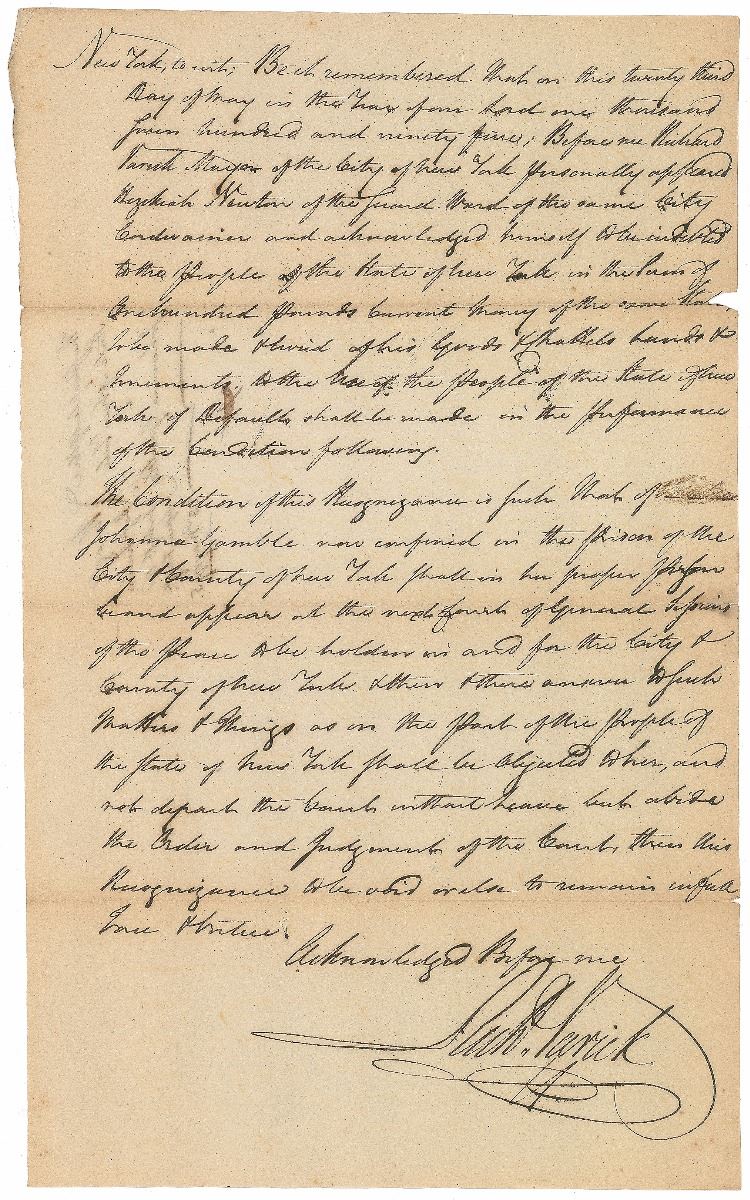 New York, to wit; Be it remembered that on this twenty third
Day of May in the Year of our Lord one thousand
Seven hundred and ninety five; Before me Richard
Varick Mayor of the City of New York personally appeared
Hezekiah Newton of the Second Ward of the same City
Cordwainer and acknowledged himself to be indebted
to the People of the State of New York in the Sum of
One hundred Pounds Current Money of the same State
to be made & levied of his Goods & Chattels Lands &
Tenements, to the Use of the People of the State of New
York if Default shall be made in the Performance
of the Condition following.
The Condition of this Recognizance is such that if
Johanna Gamble now confined in the prison of the
City & County of New York shall in her proper person
be and appear at the next Court of General Sessions
of the Peace to be holden in and for the City &
County of New York & then & there answer to such
Matters & Things as on the Part of the People of
the State of New York shall be Objected to her, and
not depart the Court without Leave but abide
the Order and Judgment of the Court, then this
Recognizance to be void or else to remain in full
Force & Virtue.
Acknowledged Before me
Richd. Varick